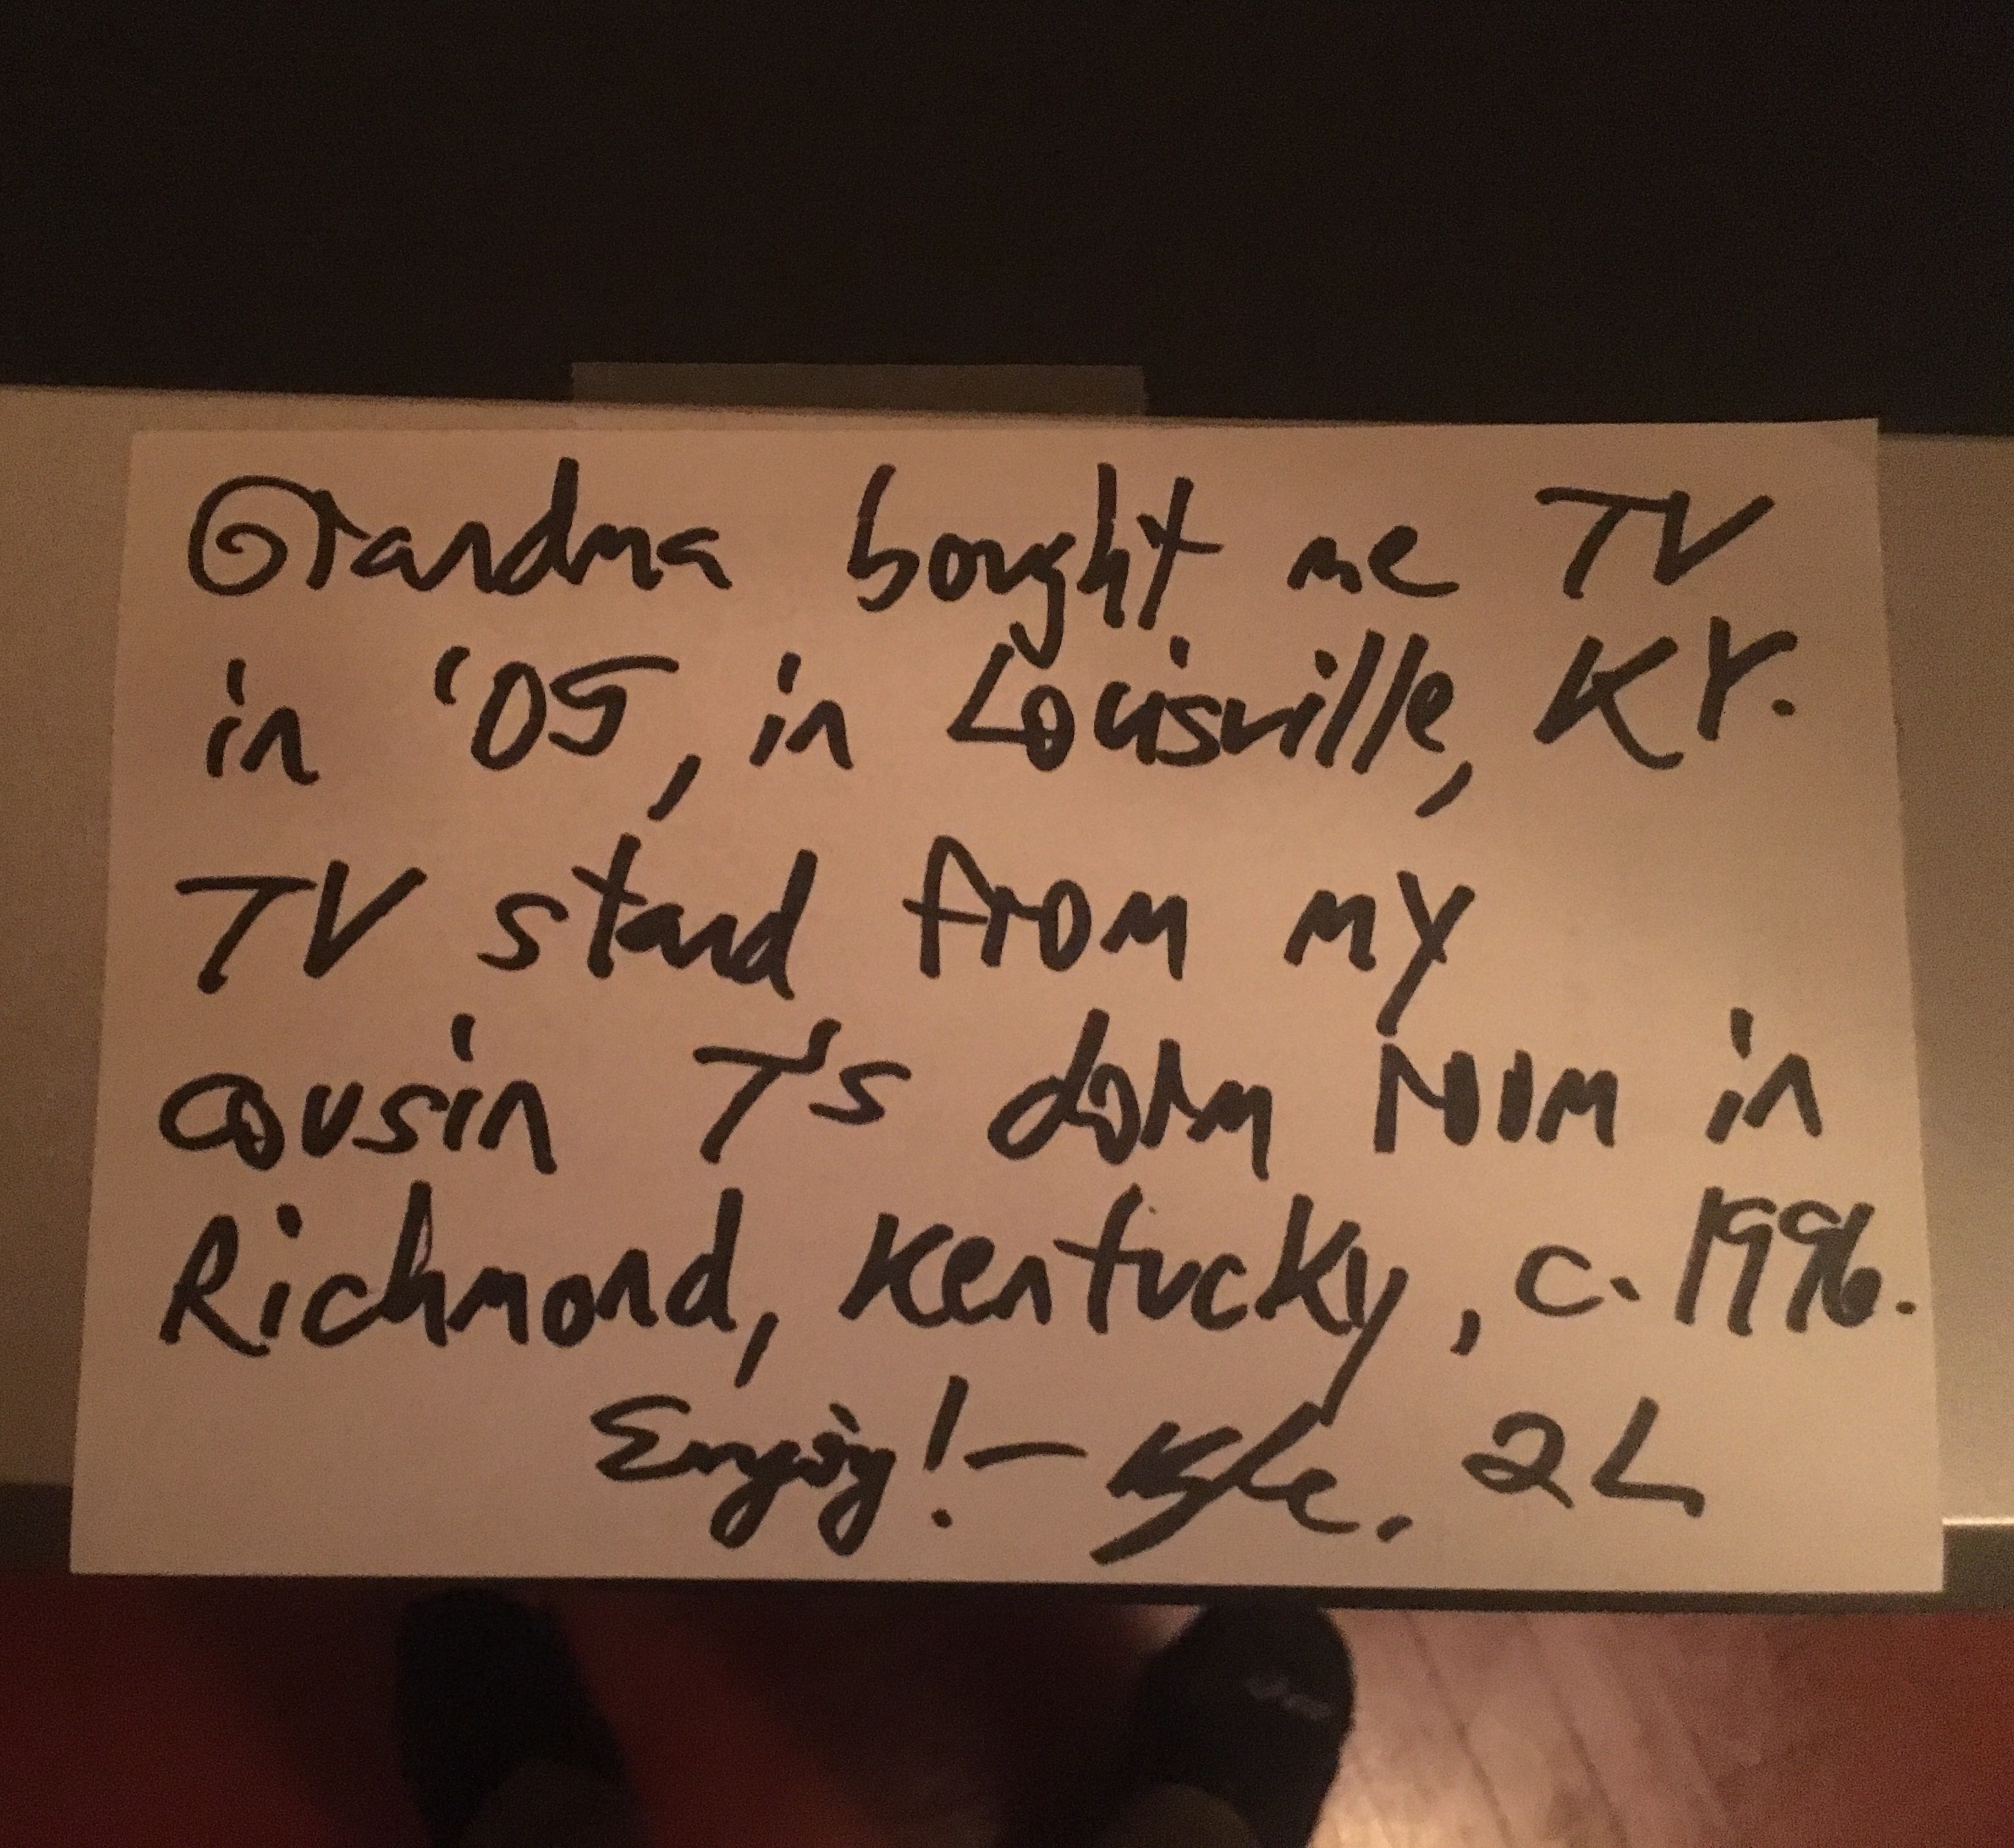 Grandma bought me TV
in '05, in Louisville, KY.
TV stand from my
cousin T's dorm room in
Richmond, Kentucky, c. 1996.
Enjoy! - Kyle. 2L